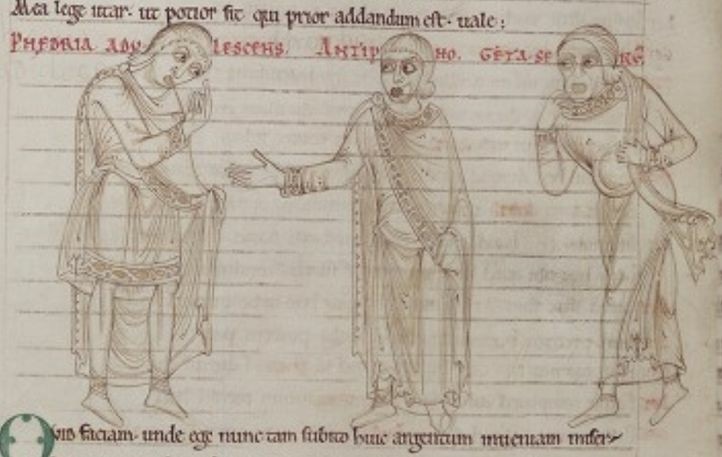 Mea lege utar. ut potior sit qui prior addandum est. uale:
PHEDRIA ADULESCENS. ANTIPHO. GETA SERV
Quid faciam. unde ego nunc tam subito huic argentum inueniam miser